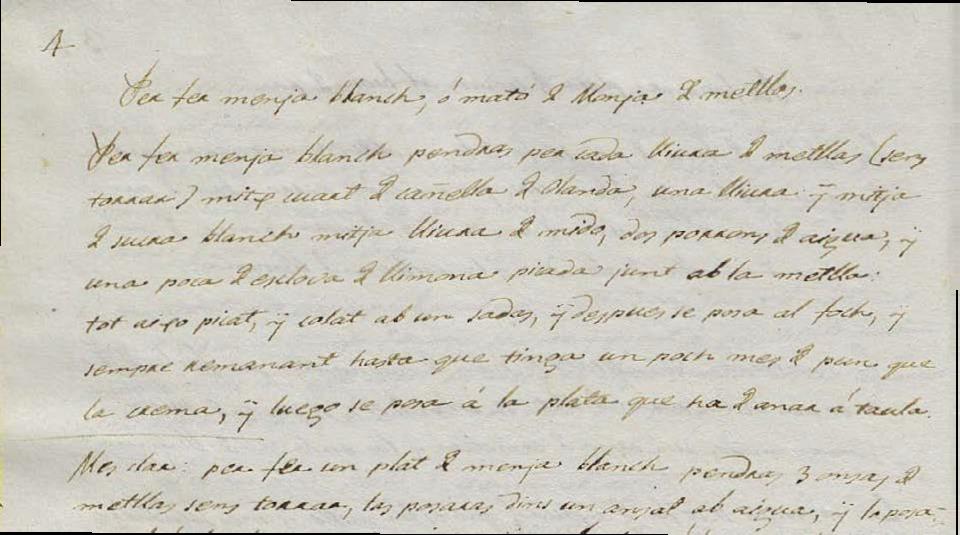 4
Per fer menja blanch, ó mató d Monja d metllas.
Per fer menja blanch pendras per cada lliura d metllas (sens
torrar) mitg cuart d cañella d Olanda, una lliura ÿ mitja
d sucra blanch mitja lliura d mido, dos porrons d aigua, ÿ
una poca d esclova d llimona picada junt ab la metlla:
tot aiço picat, ÿ colat ab un sadas, ÿ despues se posa al foch, ÿ
sempre remanant hasta que tinga un poch mes d que
la crema, ÿ luego se posa á la plata que ha d anar á taula.
Mes clar: per fer un plat d menja blanch pendras 3 onsas d
metllas sens torrar, las posaras dins un ansat ab aigua, ÿ la posa-